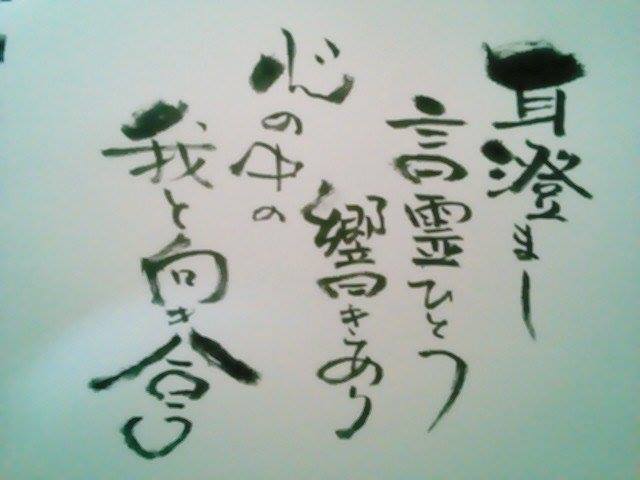 耳澄まし
言霊ひとつ
響きあり
心の中の
我と向き合う